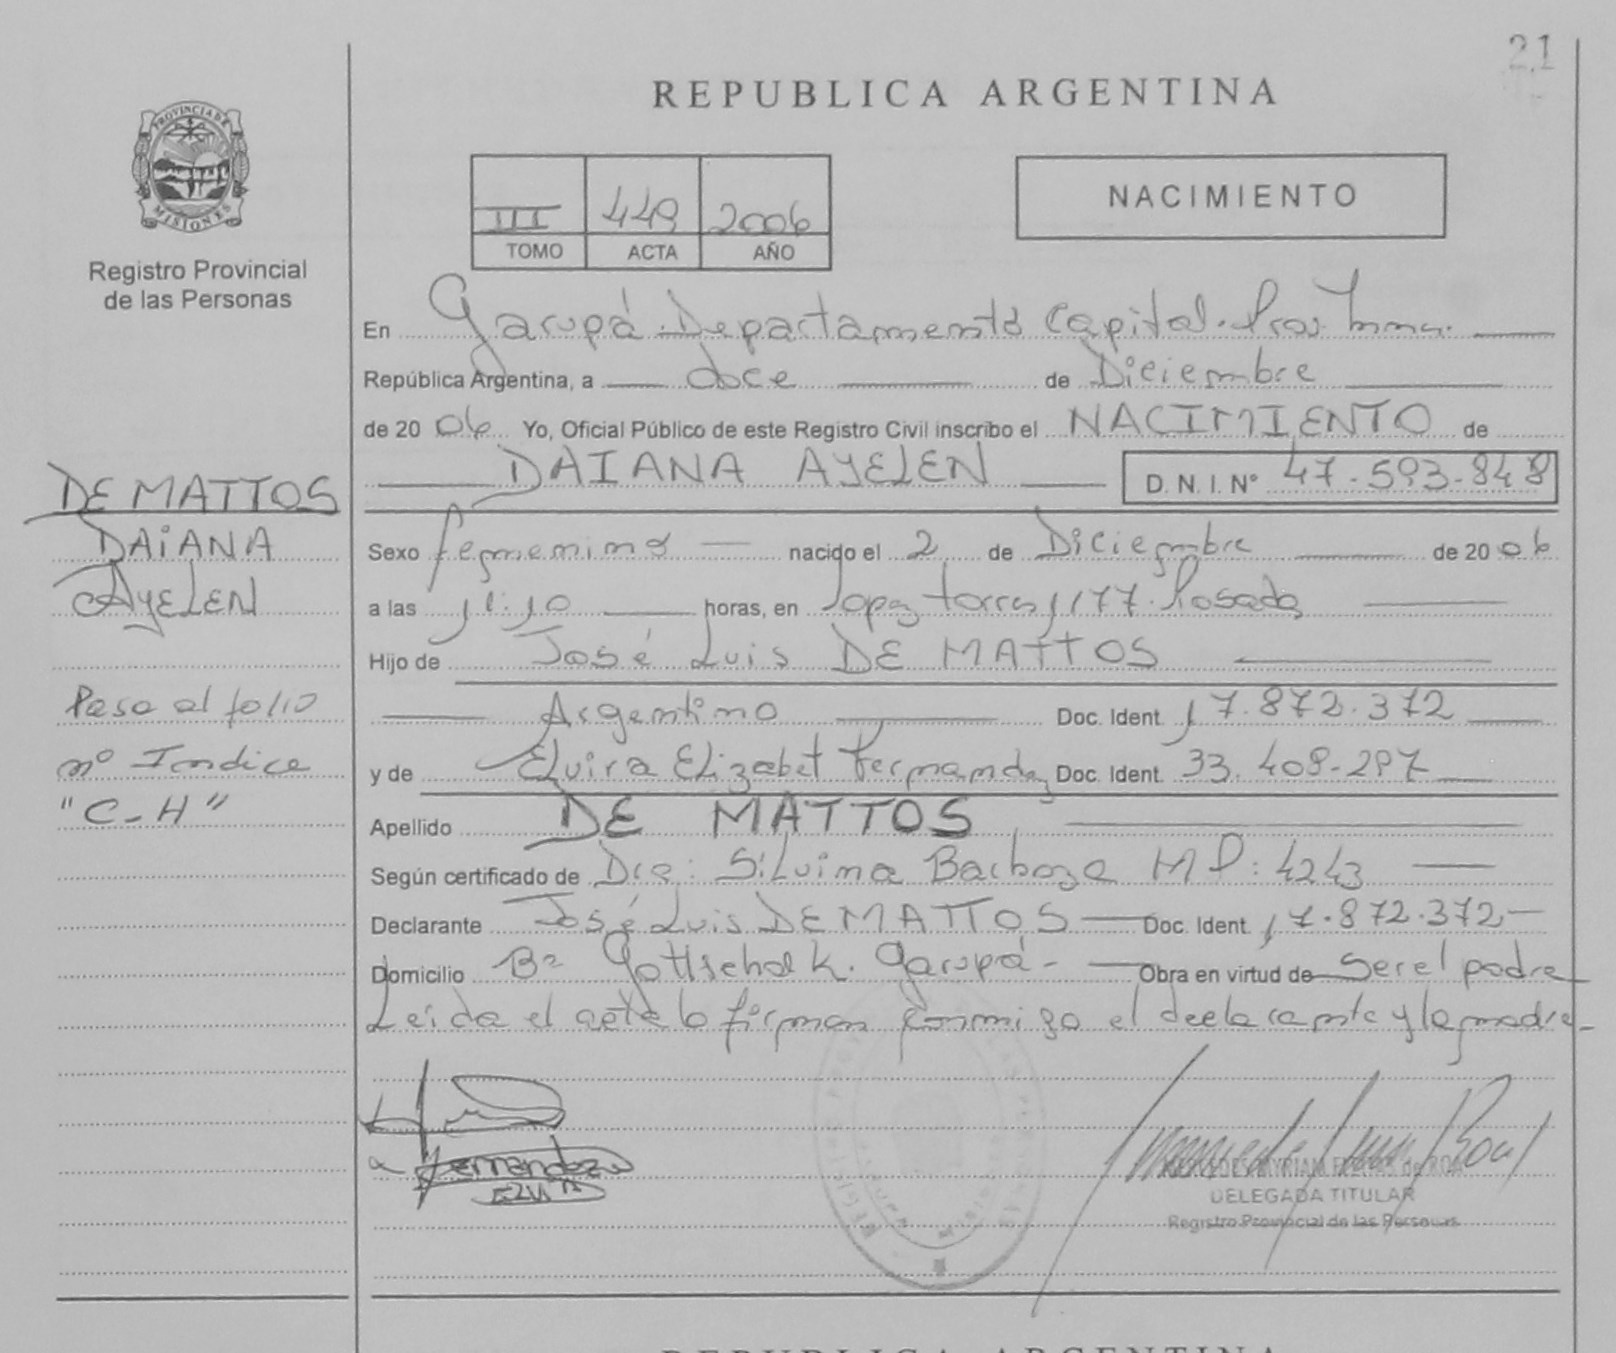 21
REPUBLICA ARGENTINA
PROVINCIA DE
MISIONES
Registro Provincial
de las Personas
III 449 2006
TOMO ACTA AÑO
NACIMIENTO
En Garupá Departamento Capital.
República Argentina, a doce de Diciembre
de 2006 Yo, Oficial Público de este Registro Civil inscribo el NACIMIENTO de
DAIANA AYELEN D. N. I. Nº 47.593.848
DE MATTOS
DAIANA
AYELEN
Sexo femenino nacido el 2 de Diciembre de 2006
a las 11:10 horas, en Lopez torres 1177. Posadas
Hijo de José Luis DE MATTOS
Argentino Doc. Ident. 17.872.372
y de Elvira Elizabet Fernandez Doc. Ident. 33.408.297
Apellido DE MATTOS
Pasa al folio
nº Indice
"C-H"
Según certificado de Dra: Silvina Barboza MP: 4243
Declarante José Luis DE MATTOS Doc. Ident. 17.872.372
Domicilio Bº Gottschalk. Garupá- Obra en virtud de Ser el padre
Leida el acta la firman conmigo el declarante y la madre-
Fernandez
ELVIRA
DELEGADA TITULAR
Registro Provincial de las Personas
REPUBLICA ARGENTINA